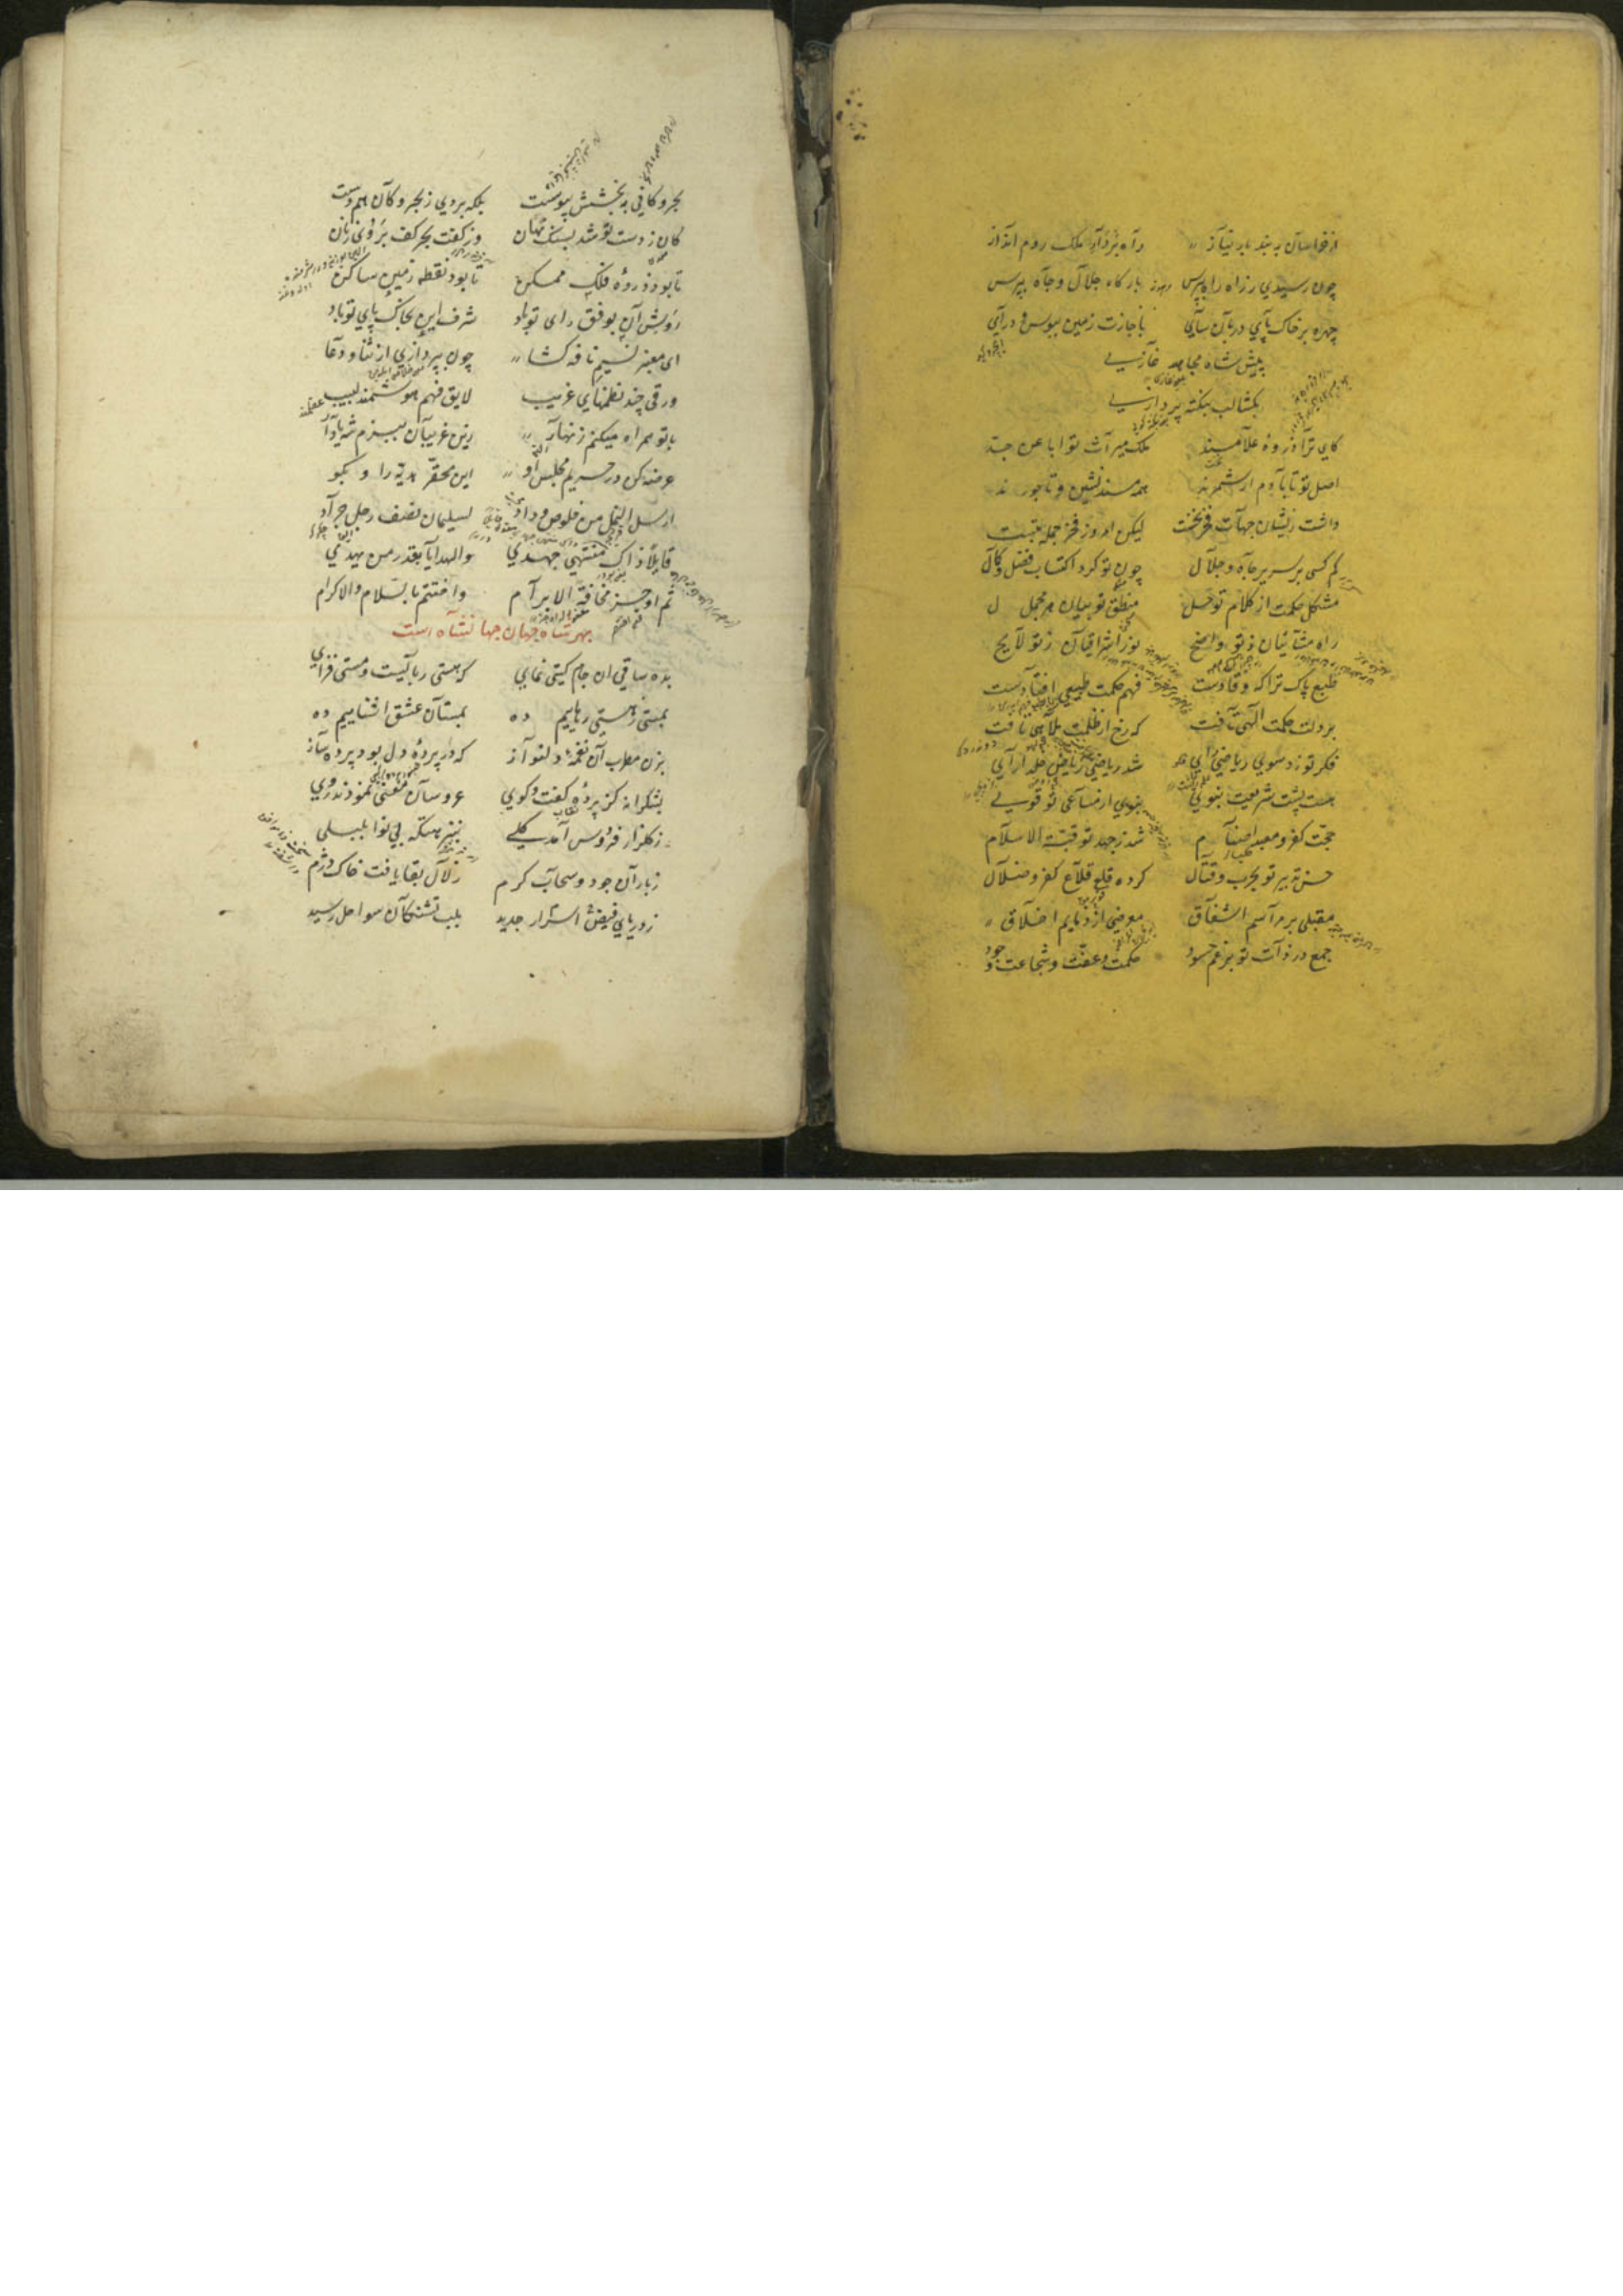 از خراسان به بند بار نیاز راه بردار ملک روم انداز
چون رسیدی ز راه راه بپرس بارگاه جلال و جاه بپرس
چهره بر خاک پای دربان سای باجازت زمین ببوس و درآی
پیش شاه مجاهد غازی
بکشا لب بنکته پردازی
کای ترا ذروهٔ علا مسند ملک میراث تو ابا عن جد
اصل تو تا بآدم ار شمرند همه مسندنشین و تاجورند
داشت زیشان جهان فر بخت لیکن امروز فخر جمله بتست
کم کسی بر سریر جاه و جلال چون تو کرد اکتساب فضل و کمال
مشکل حکمت از کلام تو حل منطق تو بیان هر مجمل
راه مشائیان ز تو واضح نور اشراقیان ز تو لایح
طبع پاک ترا که وقادست فهم حکمت طبیعی افتادست
بر دلت حکمت الهی تافت که رخ از ظلمت ملاهی تافت
فکر تو زد سوی ریاضی رای شد ریاضی ریاض خلد آرای
هست پشت شریعت نبوی بنوی از مساعی تو قوی
حجت کفر و معبد اصنام شد ز جهد تو قبة الاسلام
حسن تدبیر تو بحرب و قتال کرده قلع قلاع کفر و ضلال
مقبلی بر مراسم اشفاق معرضی از ذمایم اخلاق
جمع در ذات تو بزعم حسود حکمت و عفت و شجاعت و جود
بحر و کانی به بخشش پیوست بلکه بردی ز بحر و کان هم دست
کان ز دست تو شد بسنگ نهان وز کفت بحر کف بر روی زنان
تا بود ذروهٔ فلک ممکن تا بود نقطه زمین ساکن
روش آن بوفق رای تو باد شرف این بخاک پای تو باد
ای معنبر نسیم نافه کشا چون بپردازی از ثنا و دعا
ورقی چند نظمهای غریب لایق فهم هوشمند لبیب
با تو همراه میکنم زنهار زین غریبان ببزم شه یاد آر
عرضه کن در حریم مجلس او این محقر هدیه را و بگو
ارسل النمل من خلوص وداد لسیلمان نصف رجل جراد
قایلا ذاک منتهی جهدی والهدایا بقدر من یهدی
ثم اوجز مخافة الابرام واختتم بالسلام والاکرام
بهر شاه جهان جهانشاه است
بده ساقی ان جام گیتی نمای که هستی ربایست و مستی فزای
بمستی ز هستی رهاییم ده بمستان عشق اشناییم ده
بزن مطرب آن نغمهٔ دلنواز که در پردهٔ دل بود پرده ساز
بشکرانه کز پردهٔ گفت و گوی عروسان معنی نمودند روی
ز گلزار فردوس آمد گلی بنزهتگه بی نوا بلبلی
ز باران جود و سحاب کرم زلال بقا یافت خاک دژم
ز دریای فیض اسرار جدید بلب تشنگان سواحل رسید